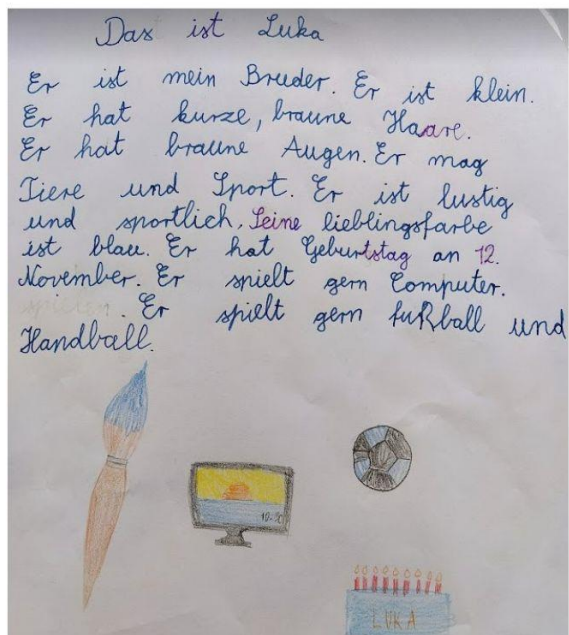 Das ist Luka
Er ist mein Bruder. Er ist klein.
Er hat kurze, braune Haare.
Er hat braune Augen. Er mag
Tiere und Sport. Er ist lustig
und sportlich. Seine lieblingsfarbe
ist blau. Er hat Geburtstag an 12.
November. Er spielt gern Computer.
spielen. Er spielt gern fußball und
Handball.
LUKA